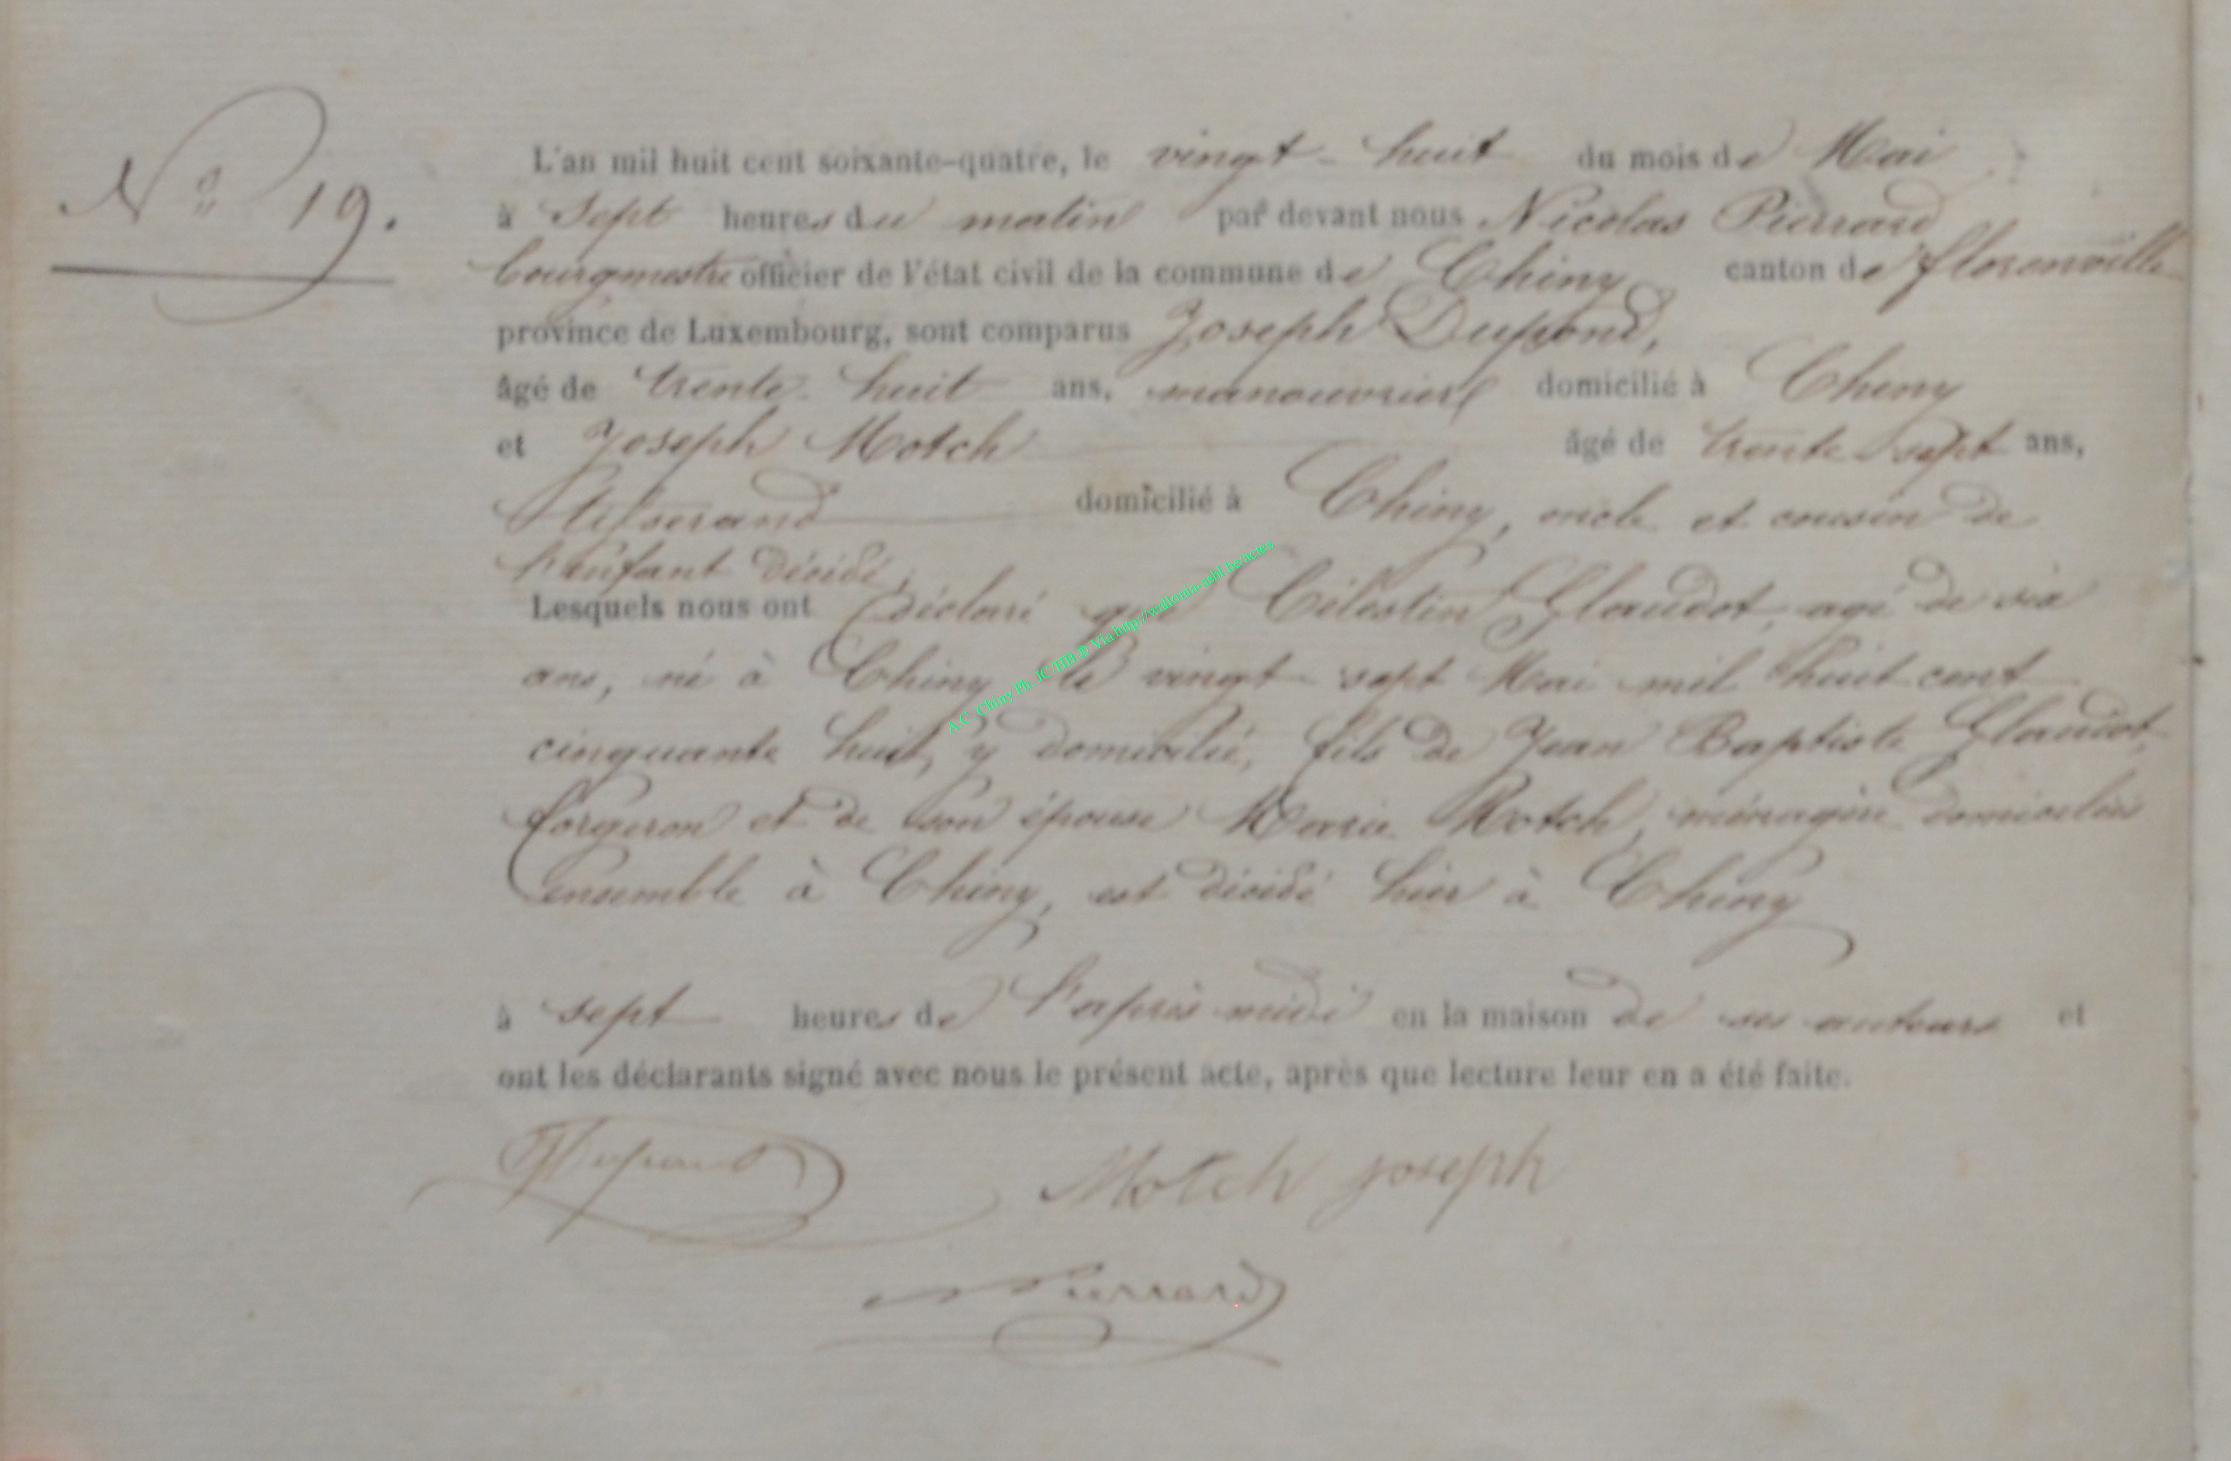 N° 19.
L'an mil huit cent soixante-quatre, le vingt-huit du mois de Mai
à sept heures du matin par devant nous Nicolas Pierrard
bourgmestre officier de l'état civil de la commune de Chiny canton de florenville
province de Luxembourg, sont comparus Joseph Dupond,
âgé de trente-huit ans, manouvrier domicilié à Chiny
et Joseph Motch âgé de trente sept ans,
tisserand domicilié à Chiny, oncle et cousin de
l'enfant décédé,
Lesquels nous ont déclaré que Célestin Glaudot, agé de six
ans, né à Chiny le vingt-sept Mai mil huit cent
cinquante huit, y domicilié, fils de Jean Baptiste Glaudot,
forgeron et de son épouse Marie Motch, ménagère domiciliés
ensemble à Chiny, est décédé hier à Chiny
à sept heures de l'après-midi en la maison de ses auteurs et
ont les déclarants signé avec nous le présent acte, après que lecture leur en a été faite.
Motch joseph
Pierrard
A.C. Chiny Ph. JC HB @ Via http://wallonia-asbl.be/actes